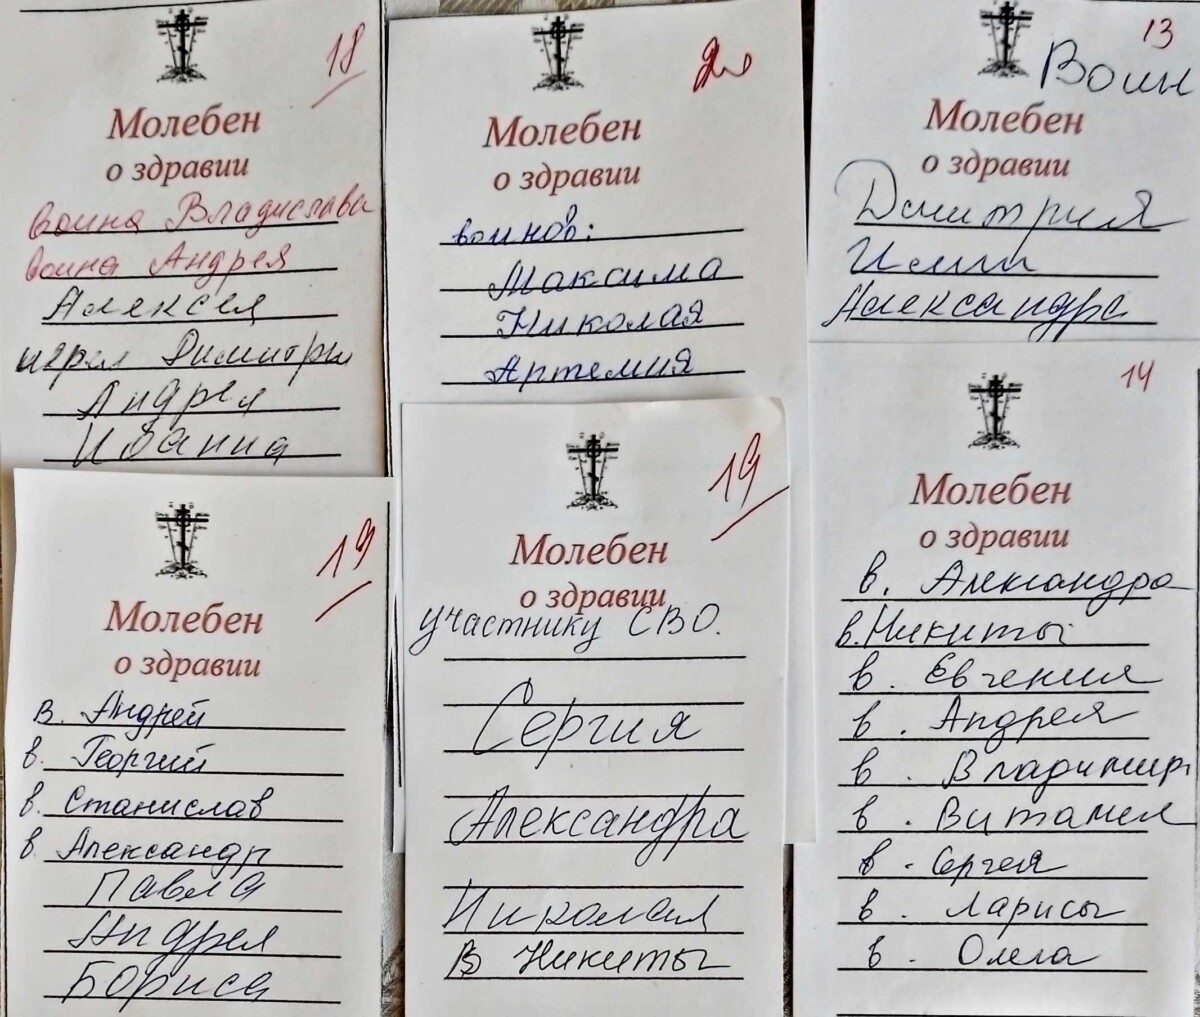 18
Молебен
о здравии
воина Владислава
воина Андрея
Алексея
иерея Димитри
Андрея
Иоанна
Молебен
о здравии
воинов:
Максима
Николая
Артемия
13
Воин
Молебен
о здравии
Дмитрия
Илии
Александра
19
Молебен
о здравии
в. Андрей
в. Георгий
в. Станислав
в. Александр
Павла
Андрея
Бориса
19
Молебен
о здравии
участнику СВО.
Сергия
Александра
Николая
в Никиты
14
Молебен
о здравии
в. Александра
в. Никиты
в. Евгения
в. Андрея
в. Владимир
в. Виталия
в. Сергея
в. Ларисы
в. Олега